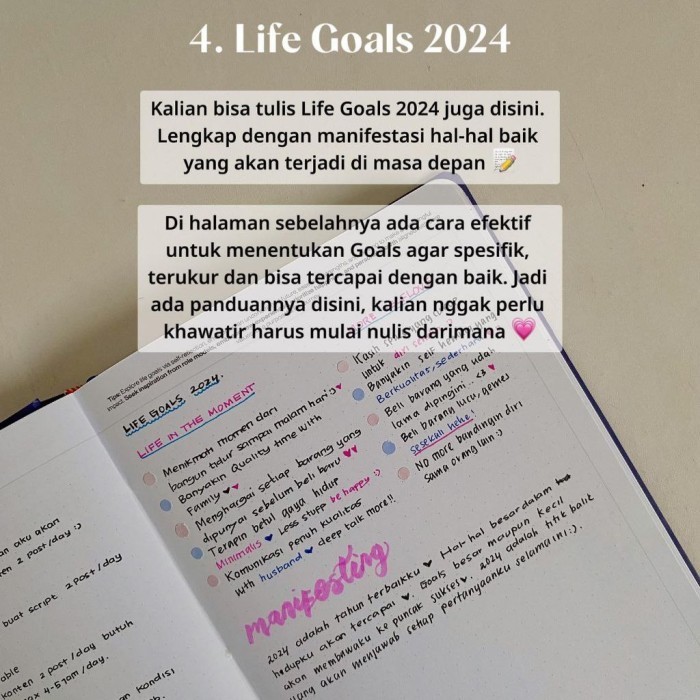 4. Life Goals 2024
Kalian bisa tulis Life Goals 2024 juga disini.
Lengkap dengan manifestasi hal-hal baik
yang akan terjadi di masa depan 📝
Di halaman sebelahnya ada cara efektif
untuk menentukan Goals agar spesifik,
terukur dan bisa tercapai dengan baik. Jadi
ada panduannya disini, kalian nggak perlu
khawatir harus mulai nulis darimana 💗
Tips: Explore life goals via self-retention,
impact. Seek inspiration from role models,
LIFE GOALS 2024.
LIFE IN THE MOMENT
Menikmati momen dari
bangun tidur sampai malam hari :)♥
Banyakin Quality time with
Family ♥♥
Menghargai setiap barang yang
dipunyai sebelum beli baru ♥♥
Terapin betul gaya hidup
Minimalis ♥ Less stuff be happy :)
Komunikasi penuh kualitas
with husband ♥ deep talk more!!
untuk diri
Banyakin self
Berkualitas,
Beli barang yang udah
lama dipingini.. <3 ♥
Beli barang lucu, gemes
sesekali hehe!
No more bandingin diri
sama orang lain :)
manifesting
2024 adalah tahun terbaikku ♥ Hal-hal besar dalam
hidupku akan tercapai ♥. Goals besar maupun kecil
akan membawaku ke puncak sukses ♥. 2024 adalah titik balik
yang akan menjawab setiap pertanyaanku selama ini :).
aku akan
2 post/day :)
buat script 2 post/day
konten 2 post/day butuh
4-5 jam/day.
kondisi